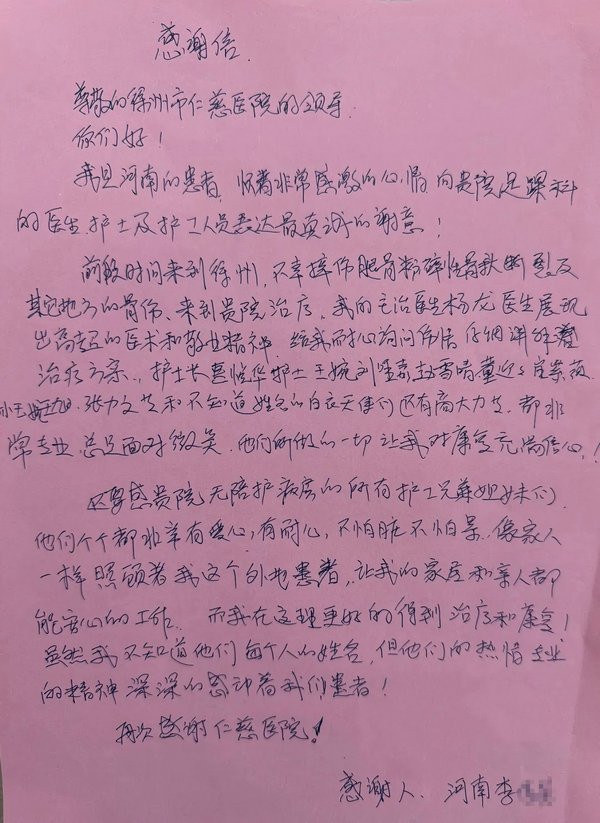 感谢信
尊敬的徐州市仁慈医院的领导
你们好！
我是河南的患者，怀着非常感激的心情向贵院足踝科
的医生.护士及护工人员表达最真诚的谢意！
前段时间来到徐州，不幸摔伤腿骨粉碎性骨折 及
其它地方的骨伤、来到贵院治疗，我的主治医生杨龙医生展现
出高超的医术和敬业精神，给我耐心询问伤情 仔细讲解着
治疗方案.，护士长 护士王婉 雪晴
小王 张力文 和不知道姓名的白衣天使们还有高大力 .都非
常专业 总是面对微笑，他们所做的一切让我对康复充满信心！
还要感贵院无陪护病房的所有护工兄弟姐妹们，
他们个个都非常有爱心，有耐心，不怕脏不怕累.像家人
一样照顾着我这个外地患者，让我的家居和亲人都
能安心的工作. 而我在这理更好的得到治疗和康复！
虽然我不知道他们每个人的姓名，但他们的热情专业
的精神深深的感动着我们患者！
再次感谢仁慈医院！
感谢人. 河南李